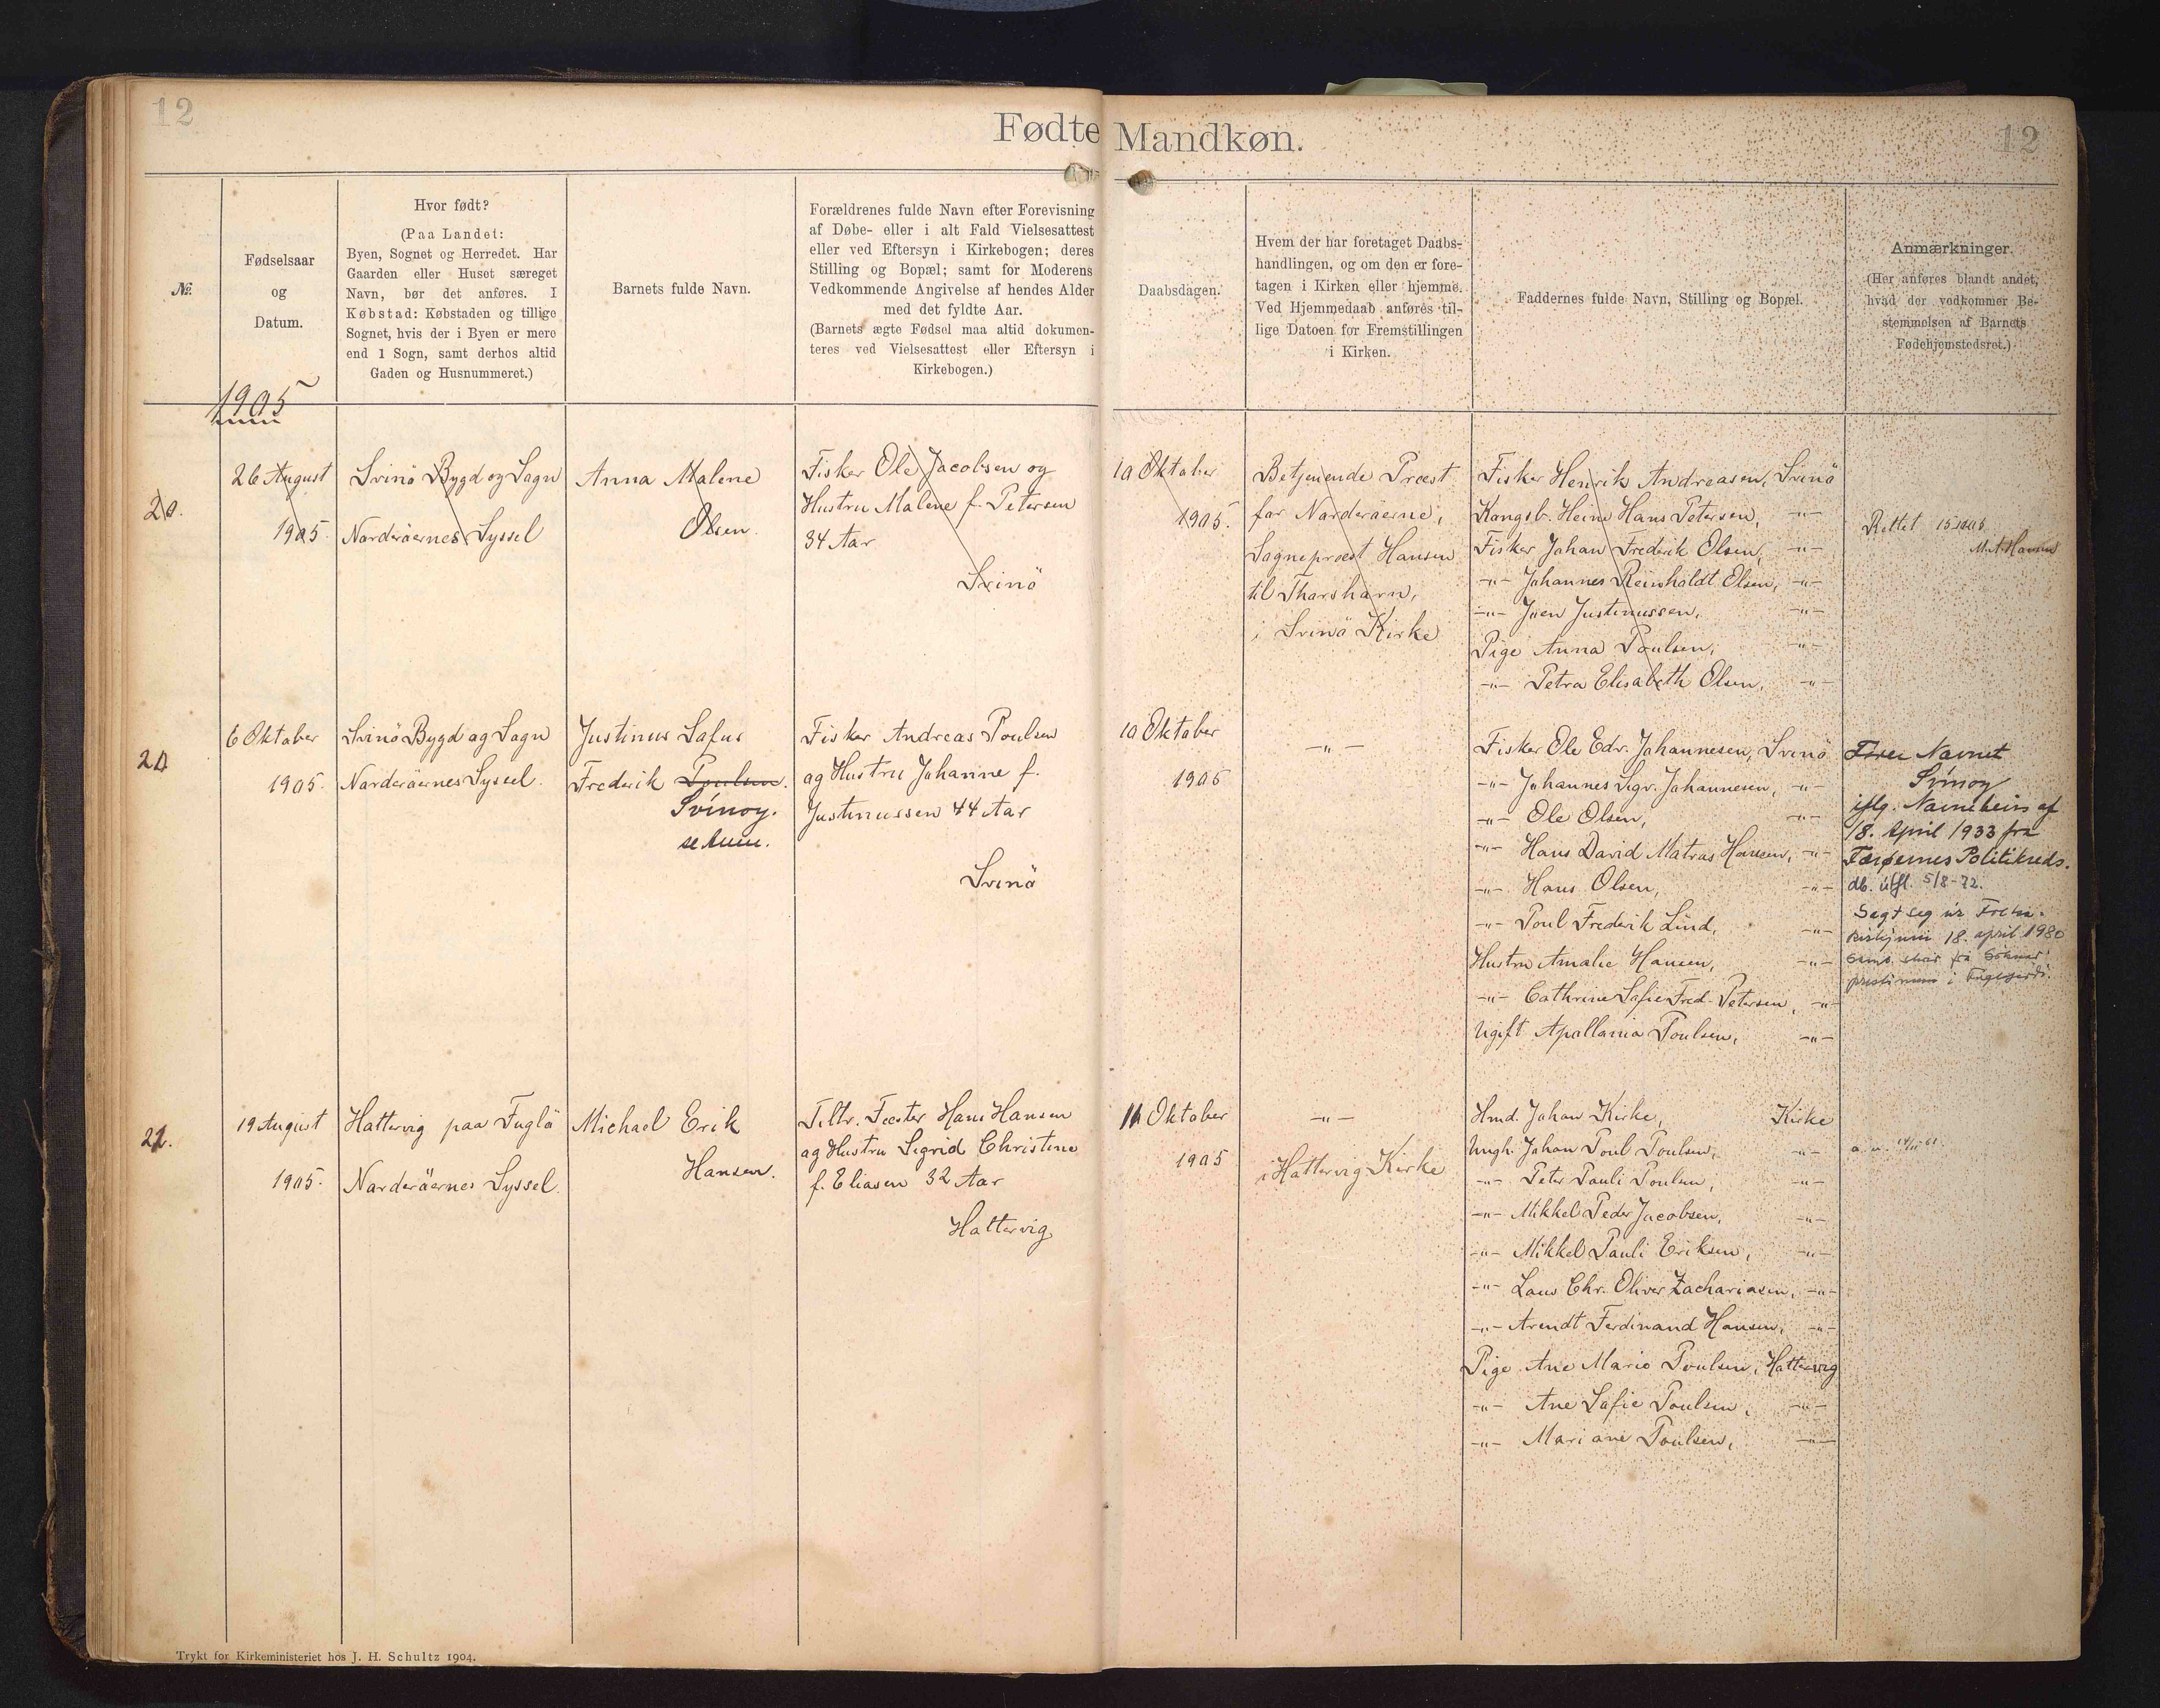 12
Fødte Mandkøn.
12
№.
Fødselsaar
og
Datum.
Hvor født?
(Paa Landet:
Byen, Sognet og Herredet. Har
Gaarden eller Huset særeget
Navn, bør det anføres. I
Købstad: Købstaden og tillige
Sognet, hvis der i Byen er mere
end 1 Sogn, samt derhos altid
Gaden og Husnummeret.)
Barnets fulde Navn.
Forældrenes fulde Navn efter Forevisning
af Døbe- eller i alt Fald Vielsesattest
eller ved Eftersyn i Kirkebogen; deres
Stilling og Bopæl; samt for Moderens
Vedkommende Angivelse af hendes Alder
med det fyldte Aar.
(Barnets ægte Fødsel maa altid dokumen-
teres ved Vielsesattest eller Eftersyn i
Kirkebogen.)
Daabsdagen.
Hvem der har foretaget Daabs-
handlingen, og om den er fore-
tagen i Kirken eller hjemme.
Ved Hjemmedaab anføres til-
lige Datoen for Fremstillingen
i Kirken.
Faddernes fulde Navn, Stilling og Bopæl.
Anmærkninger.
(Her anføres blandt andet,
hvad der vedkommer Be-
stemmelsen af Barnets
Fødehjemstedsret.)
1905
20.
26 August
1905.
Svinö Bygd og Sogn
Norderöernes Syssel
Anna Malene
Olsen.
Fisker Ole Jacobsen og
Hustru Malene f. Petersen
34 Aar
Svinö
10 Oktober
1905.
Betjenende Præst
for Norderöerne,
Sognepræst Hansen
til Thorshavn,
i Svinö Kirke
Fisker Henrik Andreasen, Svinö
Kongsb. Heine Hans Petersen, -"-
Fisker Johan Frederik Olsen, -"-
-"- Johannes Reinholdt Olsen, -"-
-"- Joen Justinussen, -"-
Pige Anna Poulsen, -"-
-"- Petra Elisabeth Olsen, -"-
Rettet
M.A. Hansen
20
6 Oktober
1905.
Svinö Bygd og Sogn
Norderöernes Syssel.
Justinus Sofus
Frederik Poulsen.
Svínoy.
se Anm.
Fisker Andreas Poulsen
og Hustru Johanne f.
Justinussen 44 Aar
Svinö
10 Oktober
1905
-"-
Fisker Ole Edv. Johannesen, Svinö
-"- Johannes Sigv. Johannesen, -"-
-"- Ole Olsen, -"-
-"- Hans David Matras Hansen, -"-
-"- Hans Olsen, -"-
-"- Poul Frederik Lind, -"-
Hustru Amalie Hansen, -"-
-"- Cathrine Sofie Fred. Petersen, -"-
Ugift Apollonia Poulsen, -"-
Fører Navnet
Svínoy
iflg. Navnebevis af
18. April 1933 fra
Færøernes Politikreds.
db. útfl. 5/8-72.
Sagt seg úr Fólka-
kirkjuni 18. apríl 1980
21.
19 August
1905.
Hattervig paa Fuglö
Norderöernes Syssel.
Michael Erik
Hansen.
Fæster Hans Hansen
og Hustru Sigrid Christine
f. Eliasen 32 Aar
Hattervig
16 Oktober
1905
-"-
i Hattervig Kirke
Hmd. Johan Kirke, Kirke
Ungk. Johan Poul Poulsen, -"-
-"- Peter Pauli Poulsen, -"-
-"- Mikkel Peder Jacobsen, -"-
-"- Mikkel Pauli Eriksen, -"-
-"- Chr. Oliver Zachariasen, -"-
-"- Arendt Ferdinand Hansen, -"-
Pige Ane Marie Poulsen, Hattervig
-"- Ane Sofie Poulsen, -"-
-"- Mariane Poulsen, -"-
Trykt for Kirkeministeriet hos J. H. Schultz 1904.